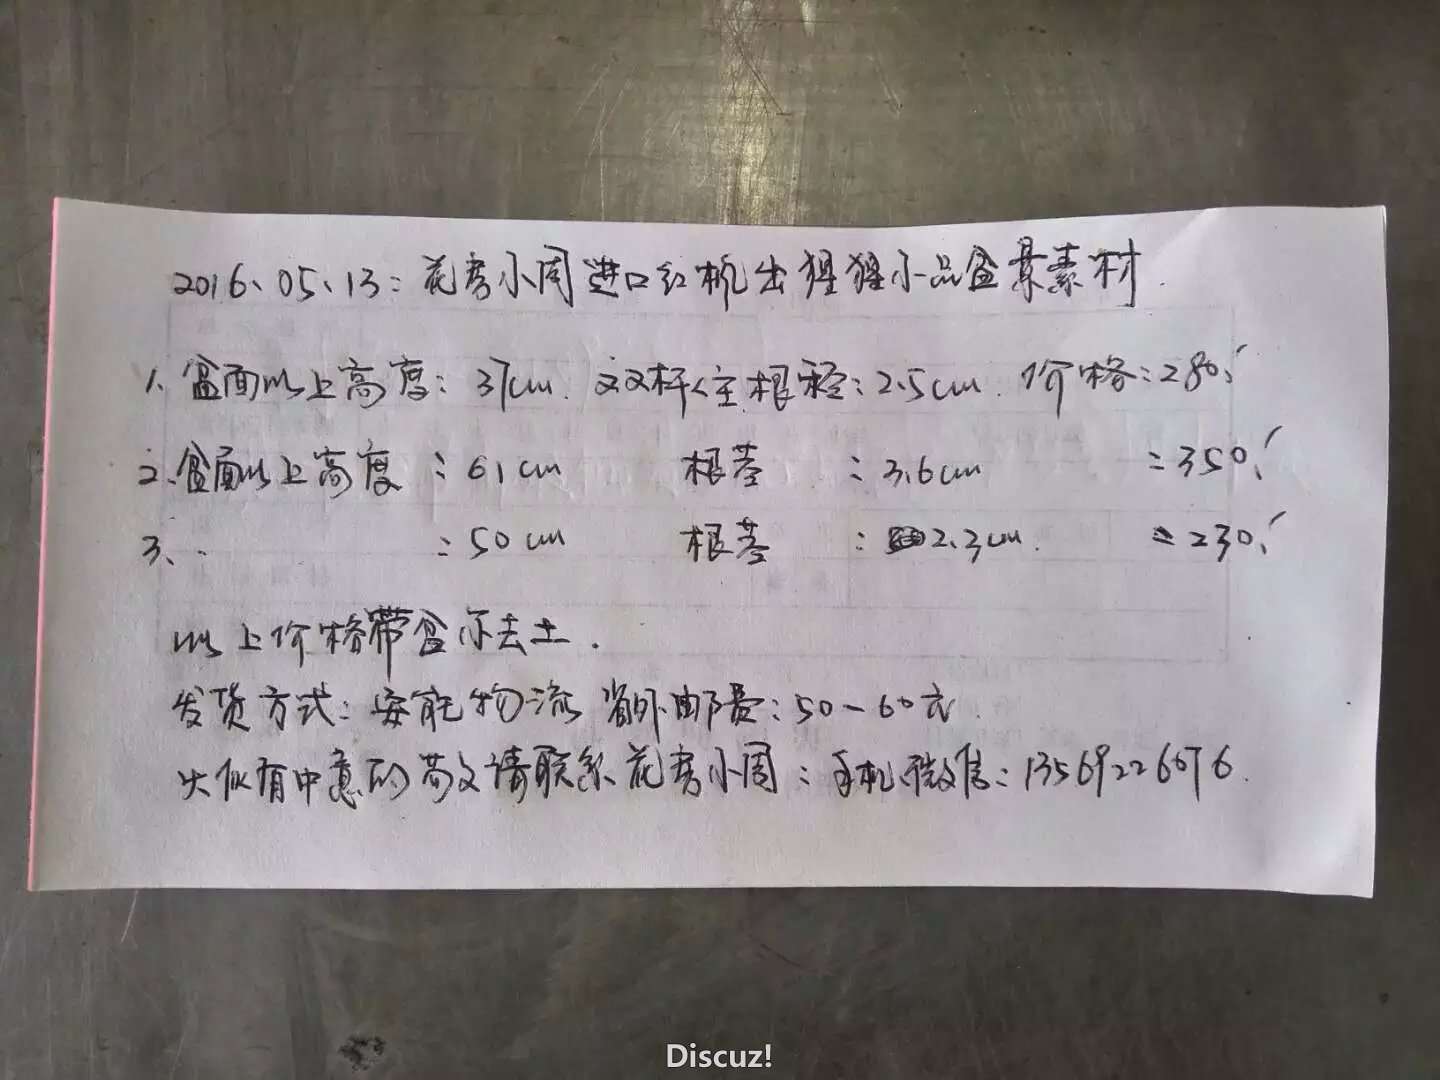 2016、05、13：花房小周进口红枫出猩猩小品盆景素材.
1、盆面以上高度：37cm. 双杆<主根径：2.5cm. 价格：280.
2、盆面以上高度：61cm 根茎：3.6cm ：350.
3、. ：50cm 根茎：2.3cm. ：230.
以上价格带盆不去土.
发货方式：安能物流 省外邮费：50-60元.
请联系花房小周：手机、微信：
Discuz!